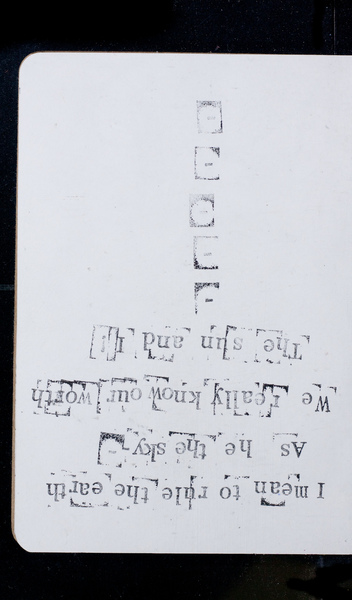 I mean to rule the earth
As he the sky-
We really know our worth
The sun and I!